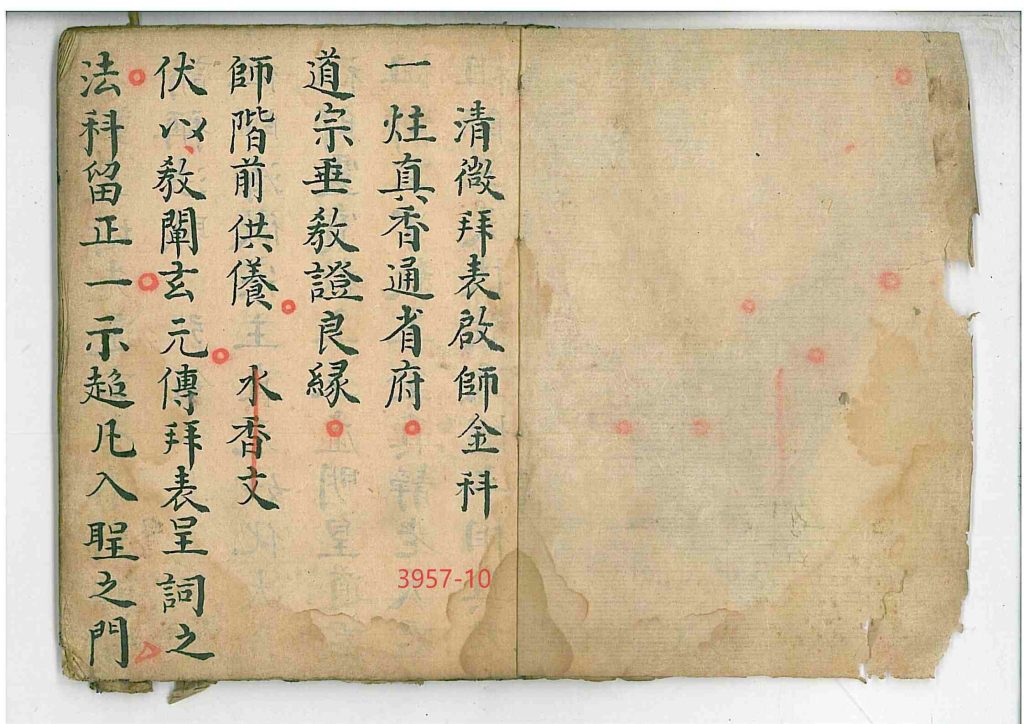 清微拜表啟師金科
一炷真香通省府
道宗垂教證良緣
師階前供養 水香文
伏以教闡玄元傳拜表呈詞之
法科留正一示超凡入聖之門
3957-10